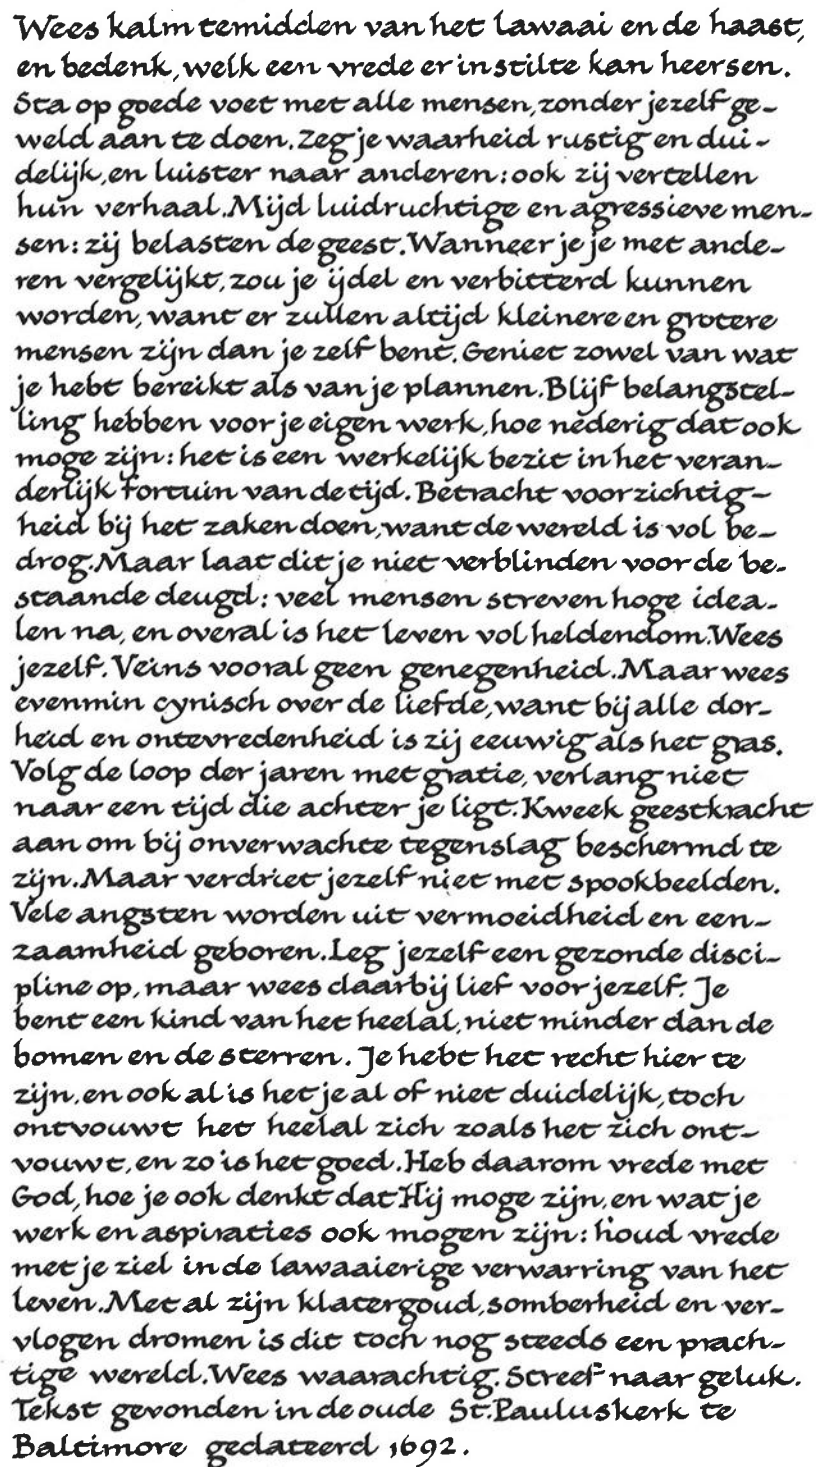 Wees kalm temidden van het lawaai en de haast,
en bedenk, welk een vrede er in stilte kan heersen.
Sta op goede voet met alle mensen, zonder jezelf ge-
weld aan te doen. Zeg je waarheid rustig en dui-
delijk, en luister naar anderen: ook zij vertellen
hun verhaal. Mijd luidruchtige en agressieve men-
sen: zij belasten de geest. Wanneer je je met ande-
ren vergelijkt, zou je ijdel en verbitterd kunnen
worden, want er zullen altijd kleinere en grotere
mensen zijn dan je zelf bent. Geniet zowel van wat
je hebt bereikt als van je plannen. Blijf belangstel-
ling hebben voor je eigen werk, hoe nederig dat ook
moge zijn: het is een werkelijk bezit in het veran-
derlijk fortuin van de tijd. Betracht voorzichtig-
heid bij het zaken doen, want de wereld is vol be-
drog. Maar laat dit je niet verblinden voor de be-
staande deugd: veel mensen streven hoge idea-
len na, en overal is het leven vol heldendom. Wees
jezelf. Veins vooral geen genegenheid. Maar wees
evenmin cynisch over de liefde, want bij alle dor-
heid en ontevredenheid is zij eeuwig als het gras.
Volg de loop der jaren met gratie, verlang niet
naar een tijd die achter je ligt. Kweek geestkracht
aan om bij onverwachte tegenslag beschermd te
zijn. Maar verdriet jezelf niet met spookbeelden.
Vele angsten worden uit vermoeidheid en een-
zaamheid geboren. Leg jezelf een gezonde disci-
pline op, maar wees daarbij lief voor jezelf. Je
bent een kind van het heelal, niet minder dan de
bomen en de sterren. Je hebt het recht hier te
zijn, en ook al is het je al of niet duidelijk, toch
ontvouwt het heelal zich zoals het zich ont-
vouwt, en zo is het goed. Heb daarom vrede met
God, hoe je ook denkt dat Hij moge zijn, en wat je
werk en aspiraties ook mogen zijn: houd vrede
met je ziel in de lawaaierige verwarring van het
leven. Met al zijn klatergoud, somberheid en ver-
vlogen dromen is dit toch nog steeds een prach-
tige wereld. Wees waarachtig. Streef naar geluk.
Tekst gevonden in de oude St. Pauluskerk te
Baltimore gedateerd 1692.